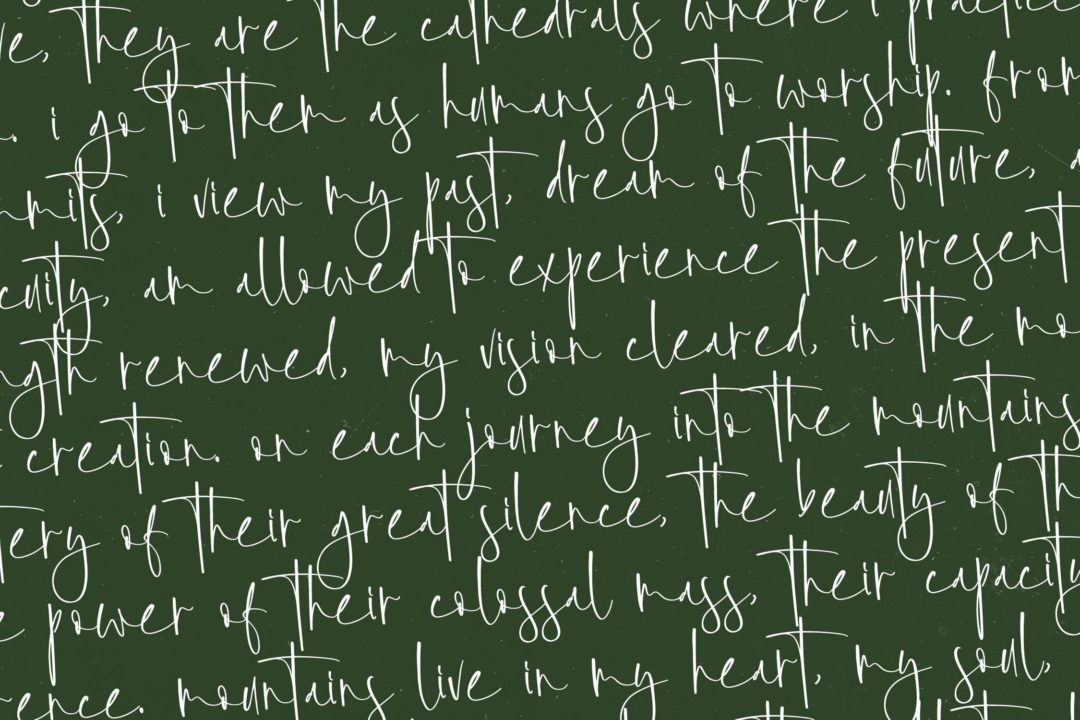 they are the cathedrals where i practice
. i go to them as humans go to worship. from
i view my past, dream of the future,
am allowed to experience the present
renewed, my vision cleared, in the
creation. on each journey into the mountains
of their great silence, the beauty of
power of their colossal mass, their capacity
mountains live in my heart, my soul,